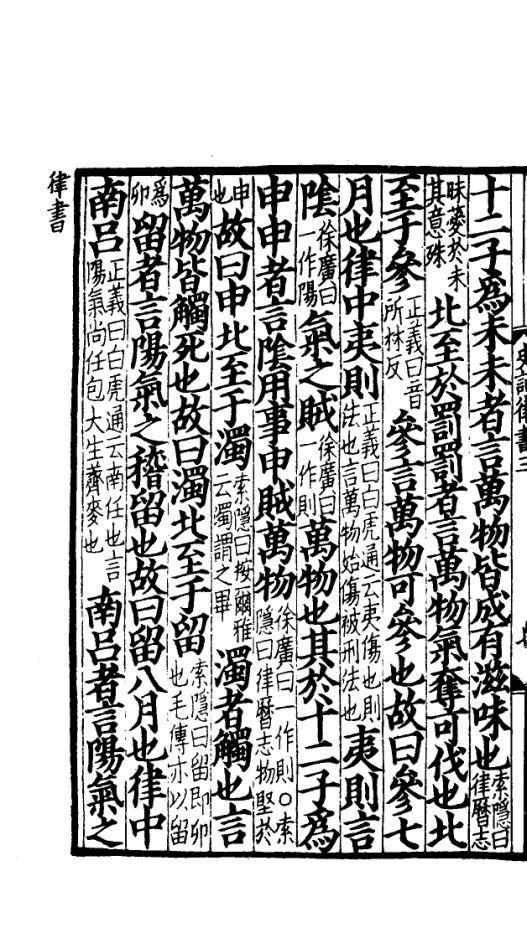 十二子爲未未者言萬物皆成有滋味也索隱曰律曆志
昧薆於未其意殊北至於罰罰者言萬物氣奪可伐也北
至于參正義曰音所林反參言萬物可參也故曰參七
月也律中夷則正義曰白虎通云夷傷也則法也言萬物始傷被刑法也夷則言
陰徐廣曰一作陽氣之賊徐廣曰一作則萬物也其於十二子爲
申申者言陰用事申賊萬物徐廣曰一作則○索隱曰律曆志物堅於
申也故曰申北至于濁索隱曰按爾雅云濁謂之畢濁者觸也言
萬物皆觸死也故曰濁北至于留索隱曰留即卯也毛傳亦以留
爲卯留者言陽氣之稽留也故曰留八月也律中
南吕正義曰白虎通云南任也言陽氣尚任包大生薺麥也南吕者言陽氣之
律書